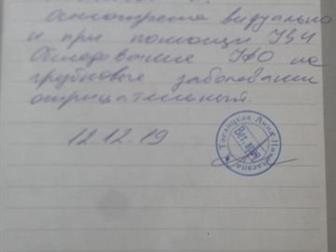 Осмотрена визуально
и при помощи УВЧ
Обследование УФО на
грибковые заболевания
отрицательный.
12.12.19